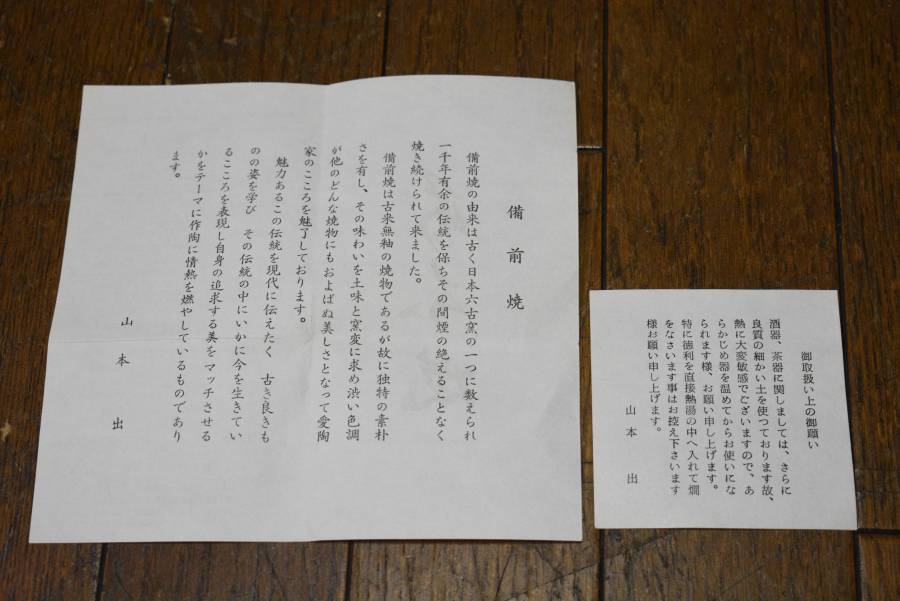 備前焼
備前焼の由来は古く日本六古窯の一つに数えられ
一千年有余の伝統を保ちその間煙の絶えることなく
焼き続けられて来ました。
備前焼は古来無釉の焼物であるが故に独特の素朴
さを有し、その味わいを土味と窯変に求め渋い色調
が他のどんな焼物にもおよばぬ美しさとなって愛陶
家のこころを魅了しております。
魅力あるこの伝統を現代に伝えたく 古き良きも
のの姿を学び その伝統の中にいかに今を生きてい
るこころを表現し自身の追求する美をマッチさせる
かをテーマに作陶に情熱を燃やしているものであり
ます。
山本出
御取扱い上の御願い
酒器、茶器に関しましては、さらに
良質の細かい土を使つております故、
熱に大変敏感でございますので、あ
らかじめ器を温めてからお使いにな
られます様、お願い申し上げます。
特に徳利を直接熱湯の中へ入れて燗
をなさいます事はお控え下さいます
様お願い申し上げます。
山本出